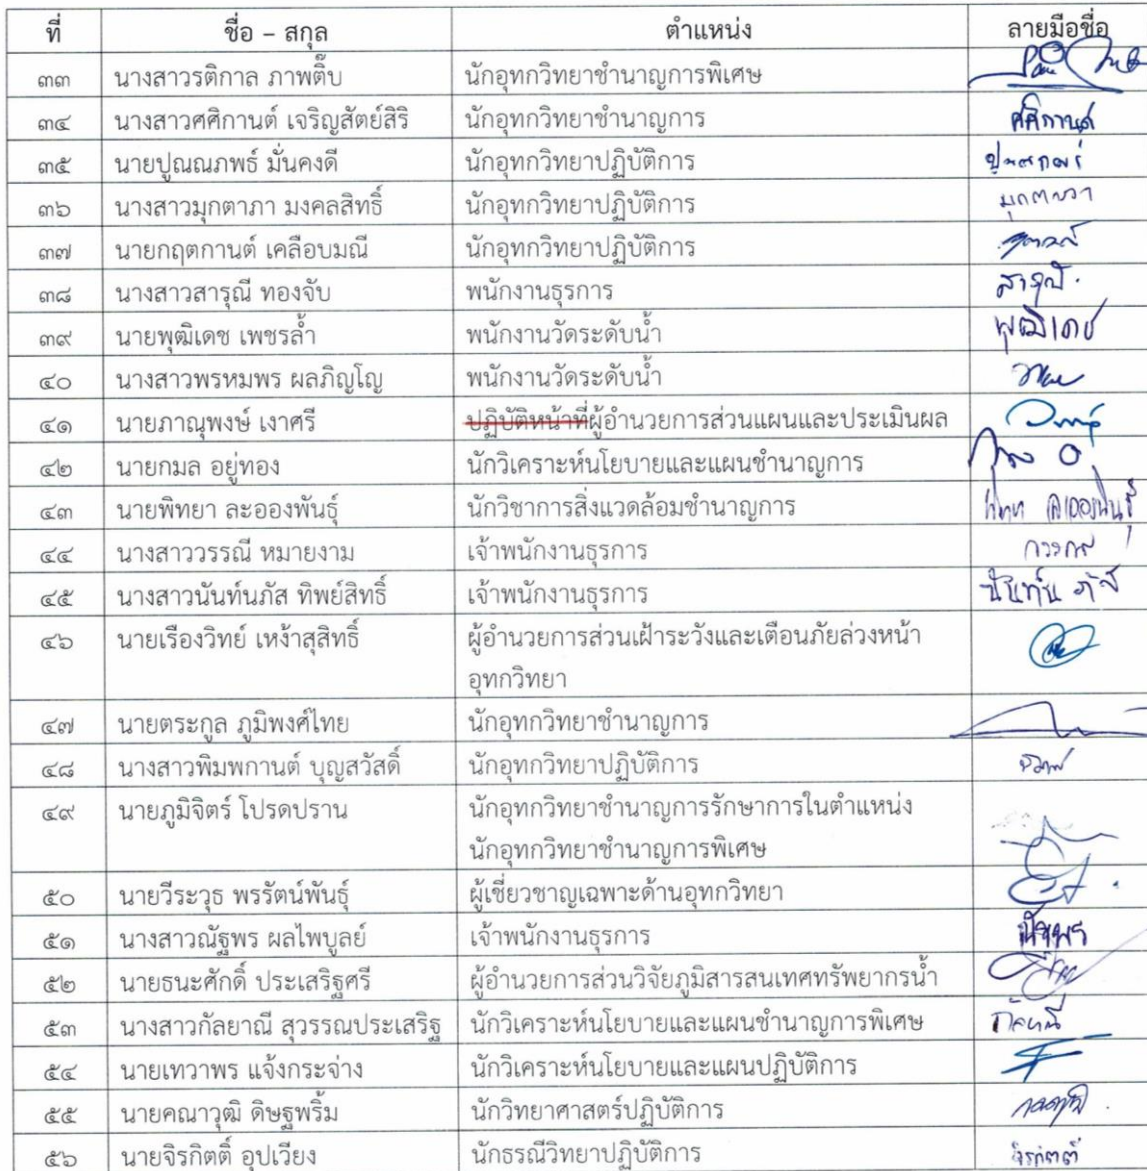 ที่ ชื่อ – สกุล ตำแหน่ง ลายมือชื่อ
๓๓ นางสาวรติกาล ภาพติ๊บ นักอุทกวิทยาชำนาญการพิเศษ
๓๔ นางสาวศศิกานต์ เจริญสัตย์สิริ นักอุทกวิทยาชำนาญการ ศศิกานต์
๓๕ นายปูณณภพธ์ มั่นคงดี นักอุทกวิทยาปฏิบัติการ
๓๖ นางสาวมุกตาภา มงคลสิทธิ์ นักอุทกวิทยาปฏิบัติการ
๓๗ นายกฤตกานต์ เคลือบมณี นักอุทกวิทยาปฏิบัติการ
๓๘ นางสาวสารุณี ทองจับ พนักงานธุรการ สารุณี
๓๙ นายพุฒิเดช เพชรล้ำ พนักงานวัดระดับน้ำ พุฒิเดช
๔๐ นางสาวพรหมพร ผลภิญโญ พนักงานวัดระดับน้ำ
๔๑ นายภาณุพงษ์ เงาศรี ปฏิบัติหน้าที่ผู้อำนวยการส่วนแผนและประเมินผล
๔๒ นายกมล อยู่ทอง นักวิเคราะห์นโยบายและแผนชำนาญการ
๔๓ นายพิทยา ละอองพันธุ์ นักวิชาการสิ่งแวดล้อมชำนาญการ
๔๔ นางสาววรรณี หมายงาม เจ้าพนักงานธุรการ
๔๕ นางสาวนันท์นภัส ทิพย์สิทธิ์ เจ้าพนักงานธุรการ
๔๖ นายเรืองวิทย์ เหง้าสุสิทธิ์ ผู้อำนวยการส่วนเฝ้าระวังและเตือนภัยล่วงหน้า
อุทกวิทยา
๔๗ นายตระกูล ภูมิพงศ์ไทย นักอุทกวิทยาชำนาญการ
๔๘ นางสาวพิมพกานต์ บุญสวัสดิ์ นักอุทกวิทยาปฏิบัติการ
๔๙ นายภูมิจิตร์ โปรดปราน นักอุทกวิทยาชำนาญการรักษาการในตำแหน่ง
นักอุทกวิทยาชำนาญการพิเศษ
๕๐ นายวีระวุธ พรรัตน์พันธุ์ ผู้เชี่ยวชาญเฉพาะด้านอุทกวิทยา
๕๑ นางสาวณัฐพร ผลไพบูลย์ เจ้าพนักงานธุรการ ณัฐพร
๕๒ นายธนะศักดิ์ ประเสริฐศรี ผู้อำนวยการส่วนวิจัยภูมิสารสนเทศทรัพยากรน้ำ
๕๓ นางสาวกัลยาณี สุวรรณประเสริฐ นักวิเคราะห์นโยบายและแผนชำนาญการพิเศษ
๕๔ นายเทวาพร แจ้งกระจ่าง นักวิเคราะห์นโยบายและแผนปฏิบัติการ
๕๕ นายคณาวุฒิ ดิษฐพริ้ม นักวิทยาศาสตร์ปฏิบัติการ
๕๖ นายจิรกิตติ์ อุปเวียง นักธรณีวิทยาปฏิบัติการ จิรกิตติ์